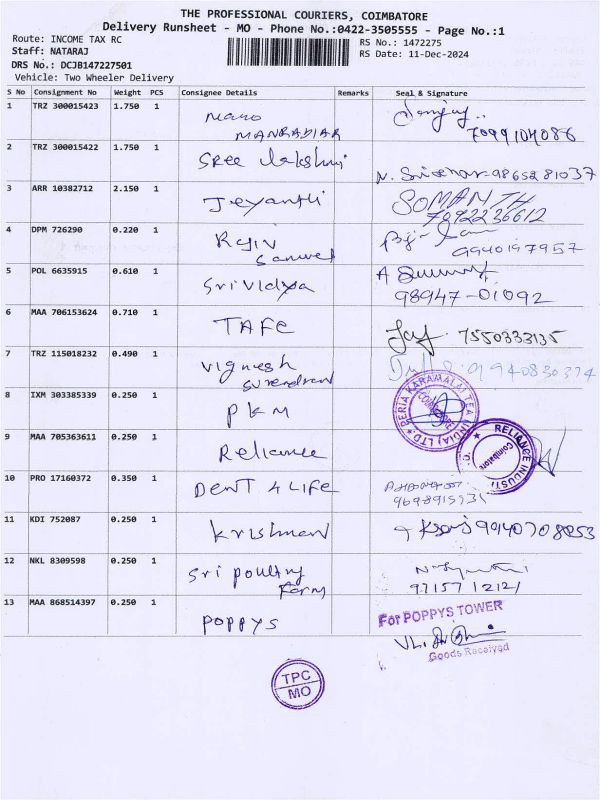 THE PROFESSIONAL COURIERS, COIMBATORE
Delivery Runsheet - MO - Phone No.:0422-3505555 - Page No.:1
Route: INCOME TAX RC
RS No.: 1472275
Staff: NATARAJ
RS Date: 11-Dec-2024
DRS No.: DCJB147227501
Vehicle: Two Wheeler Delivery
S No Consignment No Weight PCS Consignee Details Remarks Seal & Signature
1 TRZ 300015423 1.750 1
MANRADIAR 7099104086
2 TRZ 300015422 1.750 1 Sree lakshmi
9865281037
3 ARR 10382712 2.150 1 Jeyanthi SOMANTH
7892236612
4 DPM 726290 0.220 1 Rajiv
9940197957
5 POL 6635915 0.610 1 Sri Vidya
98947-01092
6 MAA 706153624 0.710 1 TAFE 7550333135
7 TRZ 115018232 0.490 1 Vignesh
Surendran
8 IXM 303385339 0.250 1 PKM
PERIA KARAMALAI TEA (INDIA) LTD
COIMBATORE
9 MAA 705363611 0.250 1 Reliance
RELIANCE INDUSTRI
Coimbatore
10 PRO 17160372 0.350 1 DENT 4 LIFE
11 KDI 752087 0.250 1 Krishnan
12 NKL 8309598 0.250 1 Sri poultry
Farm 97157 12121
13 MAA 868514397 0.250 1 POPPYS
For POPPYS TOWER
Goods Received
TPC
MO